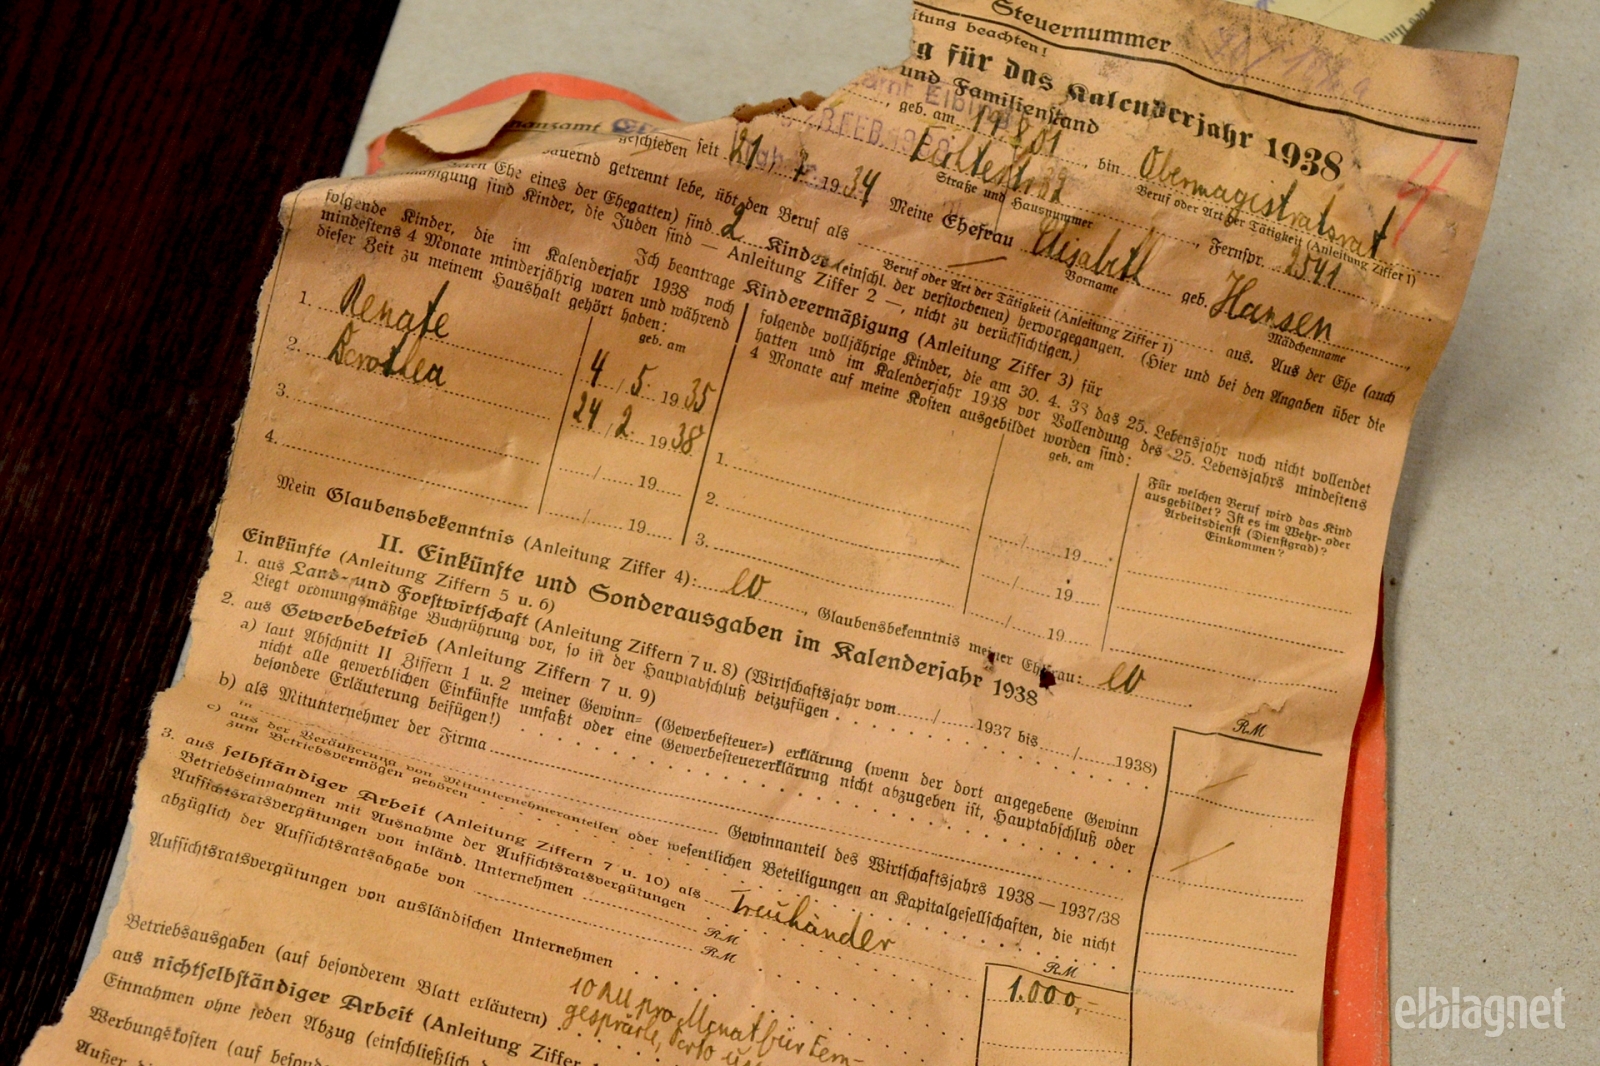 Steuernummer
itung beachten!
g für das Kalenderjahr 1938
und Familienstand
geb. am 1901, bin Obermagistratsrat
Beruf oder Art der Tätigkeit (Anleitung Ziffer 1)
Straße und Hausnummer
Fernspr. 2541
28 FEB.
geschieden seit 21/ 3. 1934 Meine Ehefrau Elisabeth geb. Hansen
Vorname Mädchenname
auernd getrennt lebe, übt den Beruf als — aus. Aus der Ehe (auch
Beruf oder Art der Tätigkeit (Anleitung Ziffer 1)
ren Ehe eines der Ehegatten) sind 2 Kinder (einschl. der verstorbenen) hervorgegangen. (Hier und bei den Angaben über die
mäßigung sind Kinder, die Juden sind — Anleitung Ziffer 2 —, nicht zu berücksichtigen.)
Ich beantrage Kinderermäßigung (Anleitung Ziffer 3) für
folgende Kinder, die im Kalenderjahr 1938 noch
mindestens 4 Monate minderjährig waren und während
dieser Zeit zu meinem Haushalt gehört haben:
geb. am
1. Renate 4/5. 1935
2. Dorothea 24/2. 1938
3. / 19
4. / 19
folgende volljährige Kinder, die am 30. 4. 38 das 25. Lebensjahr noch nicht vollendet
hatten und im Kalenderjahr 1938 vor Vollendung des 25. Lebensjahrs mindestens
4 Monate auf meine Kosten ausgebildet worden sind:
geb. am
Für welchen Beruf wird das Kind
ausgebildet? Ist es im Wehr- oder
Arbeitsdienst (Dienstgrad)?
Einkommen?
1. / 19
2. / 19
3. / 19
Mein Glaubensbekenntnis (Anleitung Ziffer 4): ev, Glaubensbekenntnis meiner Ehefrau: ev
II. Einkünfte und Sonderausgaben im Kalenderjahr 1938
Einkünfte (Anleitung Ziffern 5 u. 6)
RM
1. aus Land- und Forstwirtschaft (Anleitung Ziffern 7 u. 8) (Wirtschaftsjahr vom / 1937 bis / 1938)
Liegt ordnungsmäßige Buchführung vor, so ist der Hauptabschluß beizufügen
2. aus Gewerbebetrieb (Anleitung Ziffern 7 u. 9)
a) laut Abschnitt II Ziffern 1 u. 2 meiner Gewinn- (Gewerbesteuer-) erklärung (wenn der dort angegebene Gewinn
nicht alle gewerblichen Einkünfte umfaßt oder eine Gewerbesteuererklärung nicht abzugeben ist, Hauptabschluß oder
besondere Erläuterung beifügen!)
b) als Mitunternehmer der Firma
in Gewinnanteil des Wirtschaftsjahrs 1938 — 1937/38
c) aus der Veräußerung von Mitunternehmeranteilen oder wesentlichen Beteiligungen an Kapitalgesellschaften, die nicht
zum Betriebsvermögen gehören
3. aus selbständiger Arbeit (Anleitung Ziffern 7 u. 10) als Treuhänder
RM
Betriebseinnahmen mit Ausnahme der Aufsichtsratsvergütungen 1.000,-
Aufsichtsratsvergütungen von inländ. Unternehmen RM
abzüglich der Aufsichtsratsabgabe von RM
Aufsichtsratsvergütungen von ausländischen Unternehmen
Betriebsausgaben (auf besonderem Blatt erläutern) 10 RM pro Monat für Fern-
gespräche, Porto
aus nichtselbständiger Arbeit (Anleitung Ziffer
Einnahmen ohne jeden Abzug (einschließlich
Werbungskosten (auf besond
Außer
elblagnet